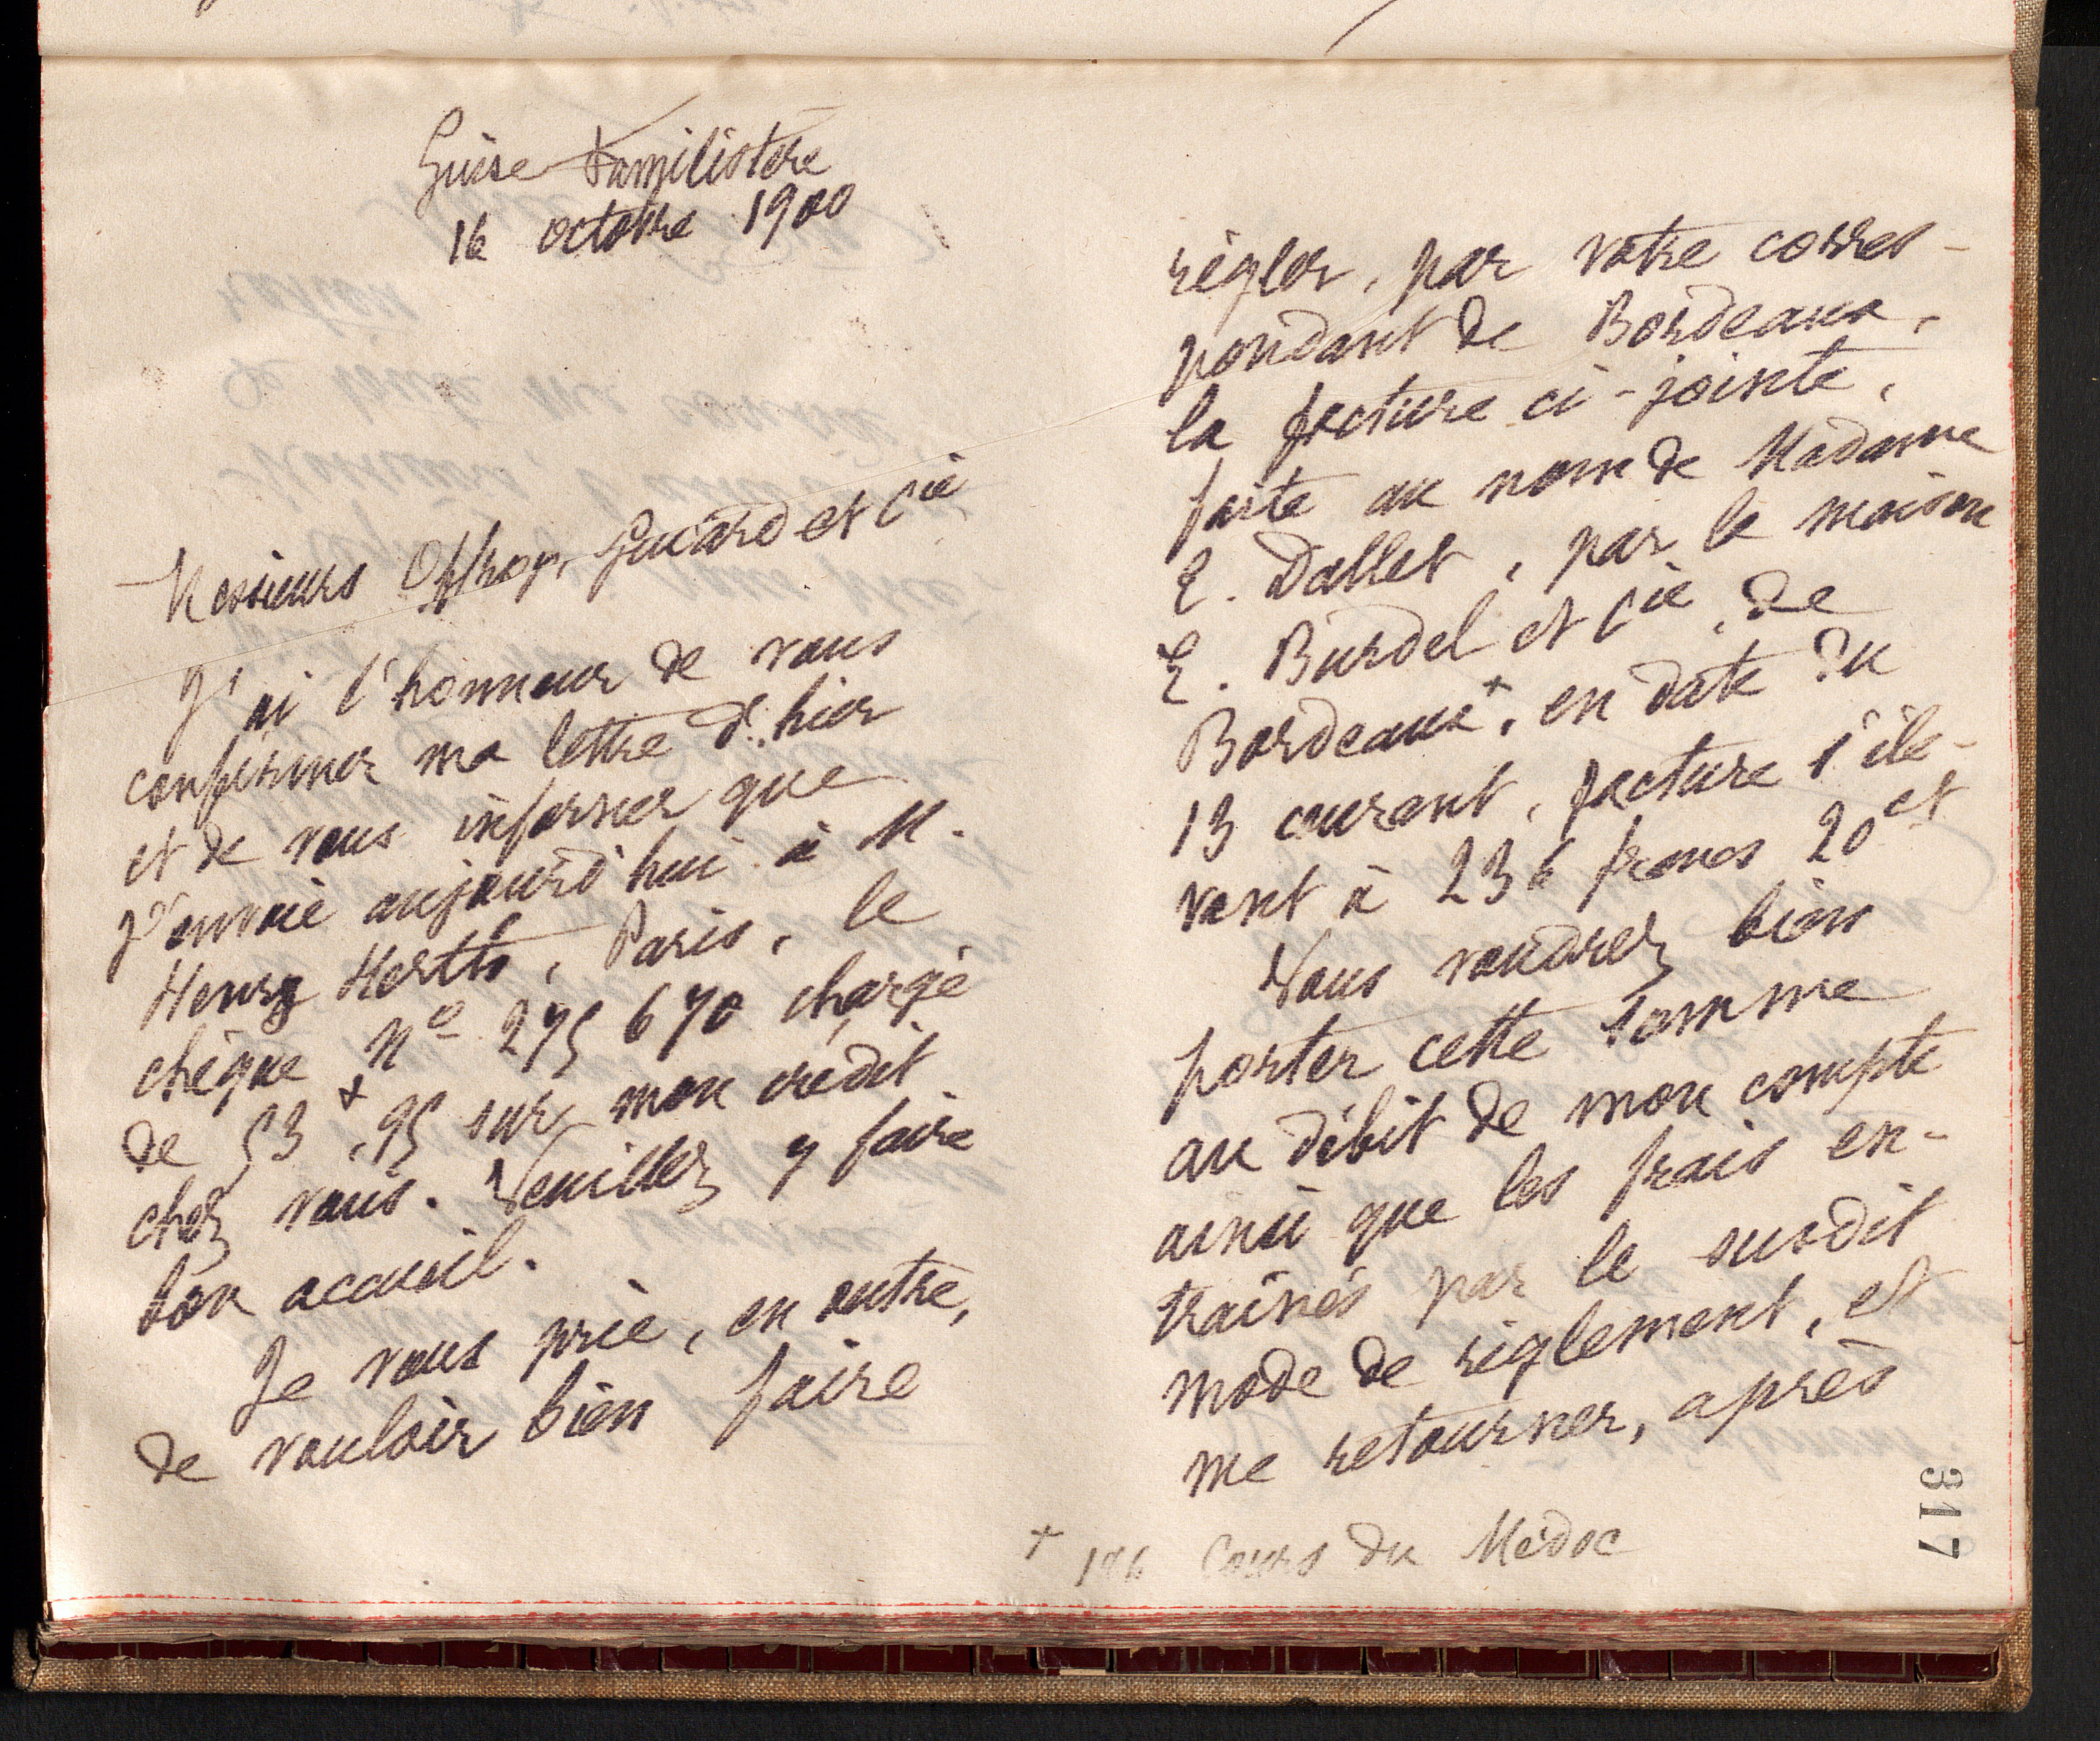 Guise Familistère
16 octobre 1900
Messieurs Offroy, Guiard et Cie
J'ai l'honneur de vous
confirmer ma lettre d'hier
et de vous informer que
j'envoie aujourd'hui à M.
Henry Herth, Paris, le
chèque n° 275 670 chargé
de 53 f, 95 sur mon crédit
chez vous. Veuillez y faire
bon accueil.
Je vous prie, en outre,
de vouloir bien faire
régler, par votre corres-
pondant de Bordeaux,
la facture ci-jointe,
faite au nom de Madame
E. Dallet, par la maison
E. Burdel et Cie, de
Bordeaux +, en date du
13 courant, facture s'éle-
vant à 236 francs 20 ct
Vous voudrez bien
porter cette somme
au débit de mon compte
ainsi que les frais en-
traînés par le susdit
mode de règlement, et
me retourner, après
+ Cours du Médoc
317